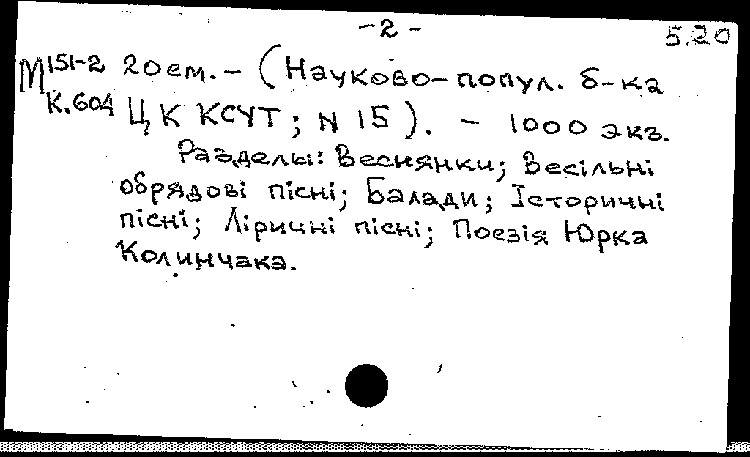 - 2 -
5.20
М151-2 20 см. - (Науково-попул. б-ка
К.604 ЦК КСУТ; N 15). - 1000 экз.
Разделы: Веснянки; Весільні
обрядові пісні; Балади; Історичні
пісні; Ліричні пісні; Поезія Юрка
Колинчака.